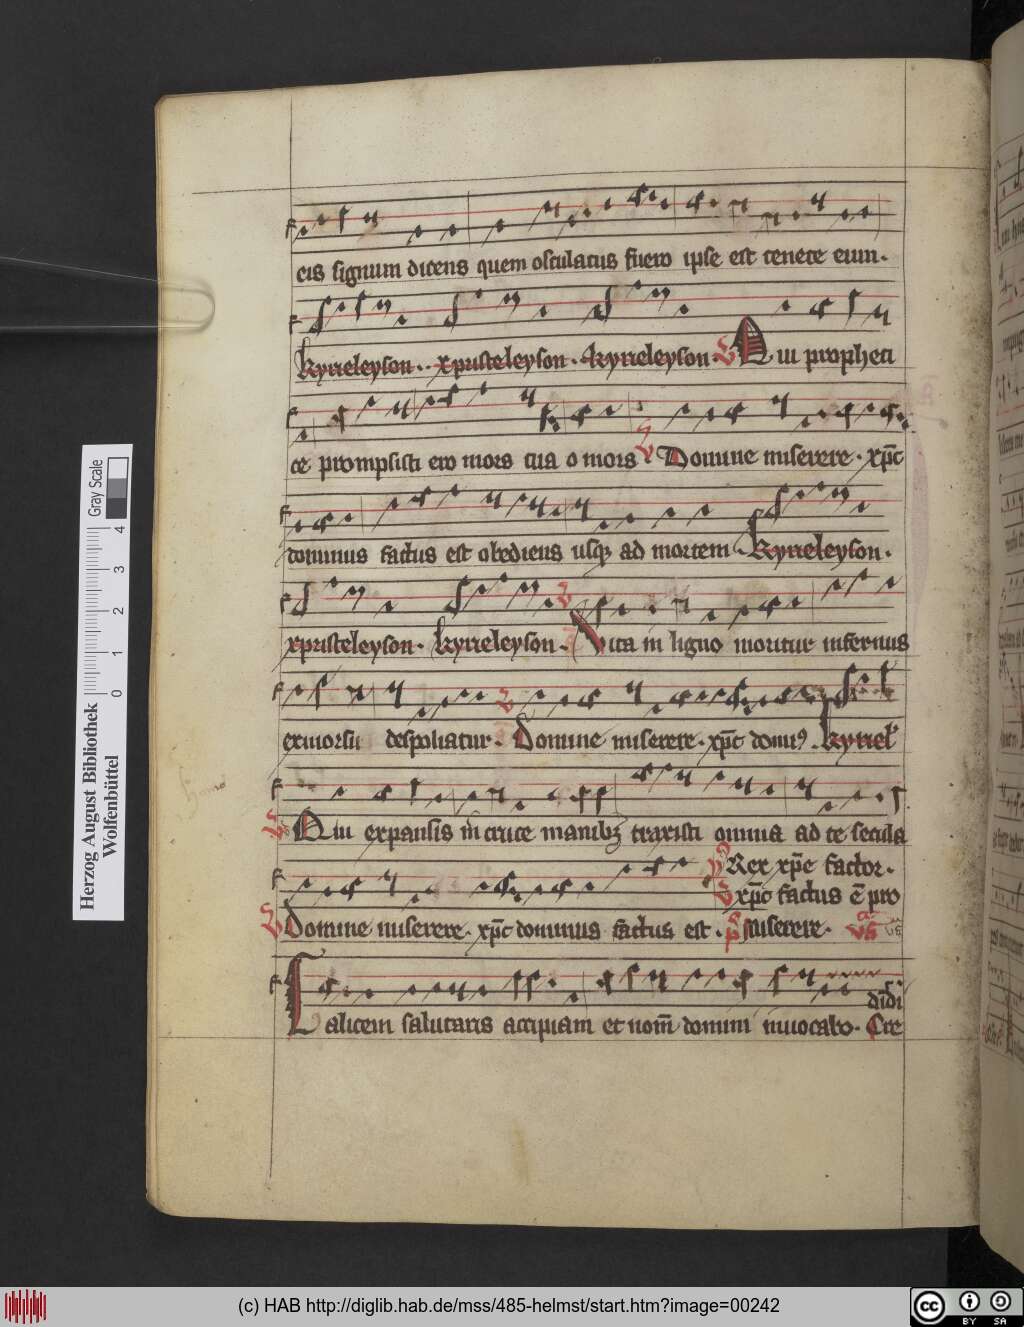 cis signum dicens quem osculatus fuero ipse est tenete eum.
kyrieleyson. xpristeleyson. kyrieleyson. V Qui propheti
ce prompsisti ero mors tua o mors. V Domine miserere. xp̄c
dominus factus est obediens usqȝ ad mortem. Kyrieleyson.
xpristeleyson. kyrieleyson. V Vita in ligno moritur infernus
exmorsu despoliatur. V Domine miserere. xp̄c domin9. kyriel
V Qui expansis in cruce manibȝ traxisti omnia ad te secula
Rex xp̄e factor.
V xp̄c factus ē pro
V Domine miserere. xp̄c dominus factus est. p̄s Miserere.
didi
Calicem salutaris accipiam et nom̄ domini invocabo. Cre
Herzog August Bibliothek
Wolfenbüttel
Gray Scale
0 1 2 3 4
(c) HAB http://diglib.hab.de/mss/485-helmst/start.htm?image=00242
cc BY SA